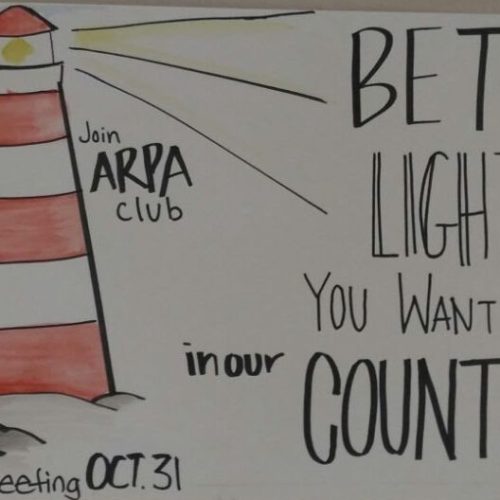 Join
ARPA
club
BET
LIGHT
YOU WANT
in our
COUNT
eeting OCT. 31